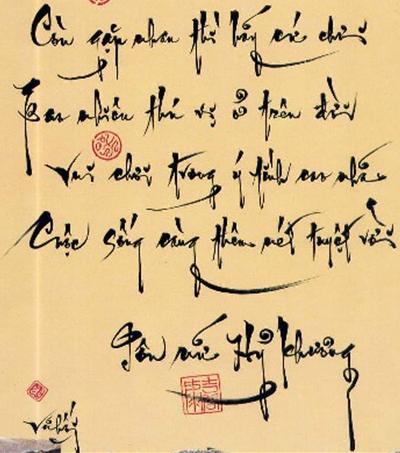 Còn gặp nhau thì hãy cứ chơi
Bao nhiêu thú vị ở trên đời
Vui chơi trong ý tình cao nhã
Cuộc sống càng thêm nét tuyệt vời
Tôn nữ Hỷ Khương
Vũ Hối